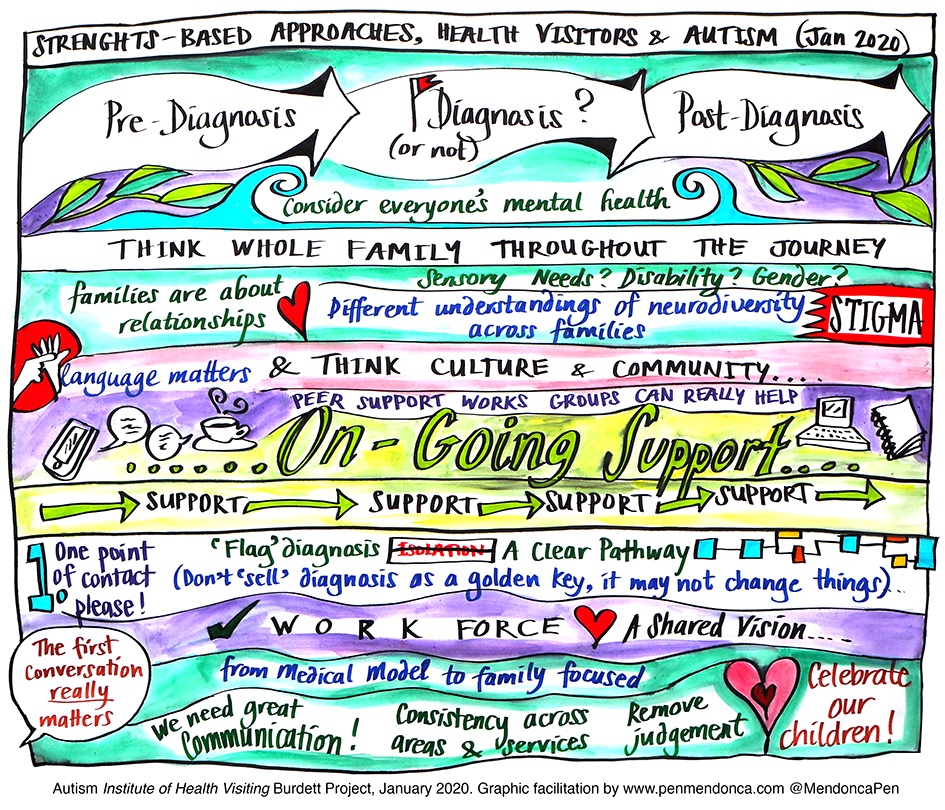 STRENGHTS-BASED APPROACHES, HEALTH VISITORS & AUTISM (Jan 2020)
Pre-Diagnosis
Diagnosis?
(or not)
Post-Diagnosis
Consider everyone's mental health
THINK WHOLE FAMILY THROUGHOUT THE JOURNEY
families are about
relationships
Sensory Needs? Disability? Gender?
Different understandings of neurodiversity
across families
STIGMA
language matters & THINK CULTURE & COMMUNITY....
PEER SUPPORT WORKS GROUPS CAN REALLY HELP
.......On-Going Support....
SUPPORT SUPPORT SUPPORT SUPPORT
One point
of contact
please!
'Flag' diagnosis ISOLATION A Clear Pathway
(Don't 'sell' diagnosis as a golden key, it may not change things)...
WORK FORCE A Shared Vision....
The first
conversation
really
matters
from Medical Model to family focused
We need great
Communication!
Consistency across
areas & services
Remove
judgement
Celebrate
our
children!
Autism Institute of Health Visiting Burdett Project, January 2020. Graphic facilitation by www.penmendonca.com @MendoncaPen